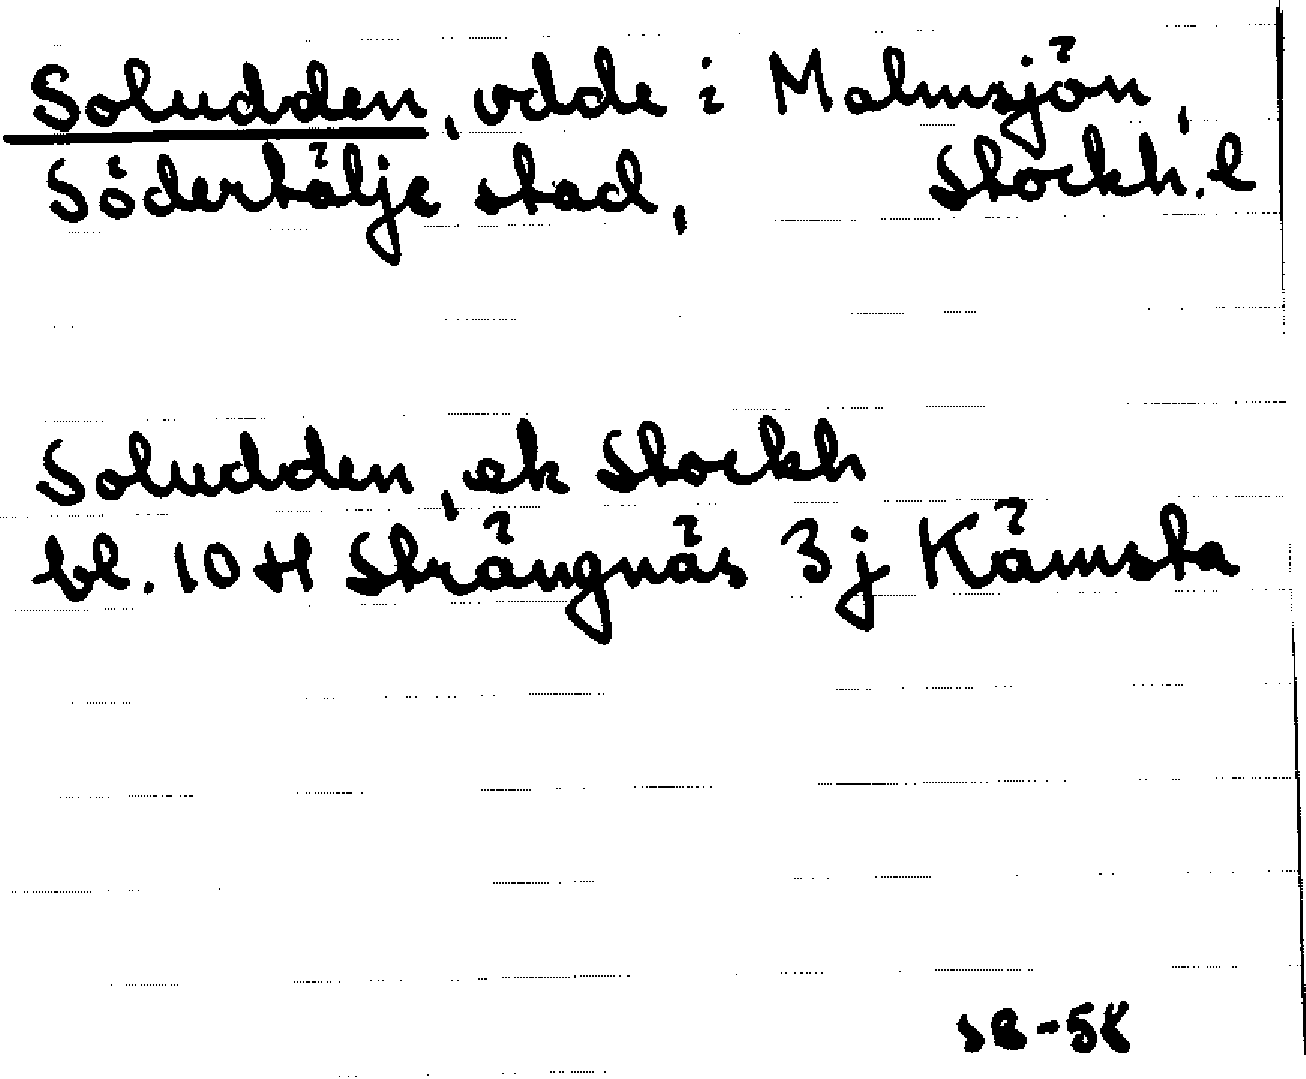 Soludden, udde i Malmsjön,
Södertälje stad, Stockh. l
Soludden, ek Stockh
bl. 10 H Strängnäs 3j Kämsta
SB-58